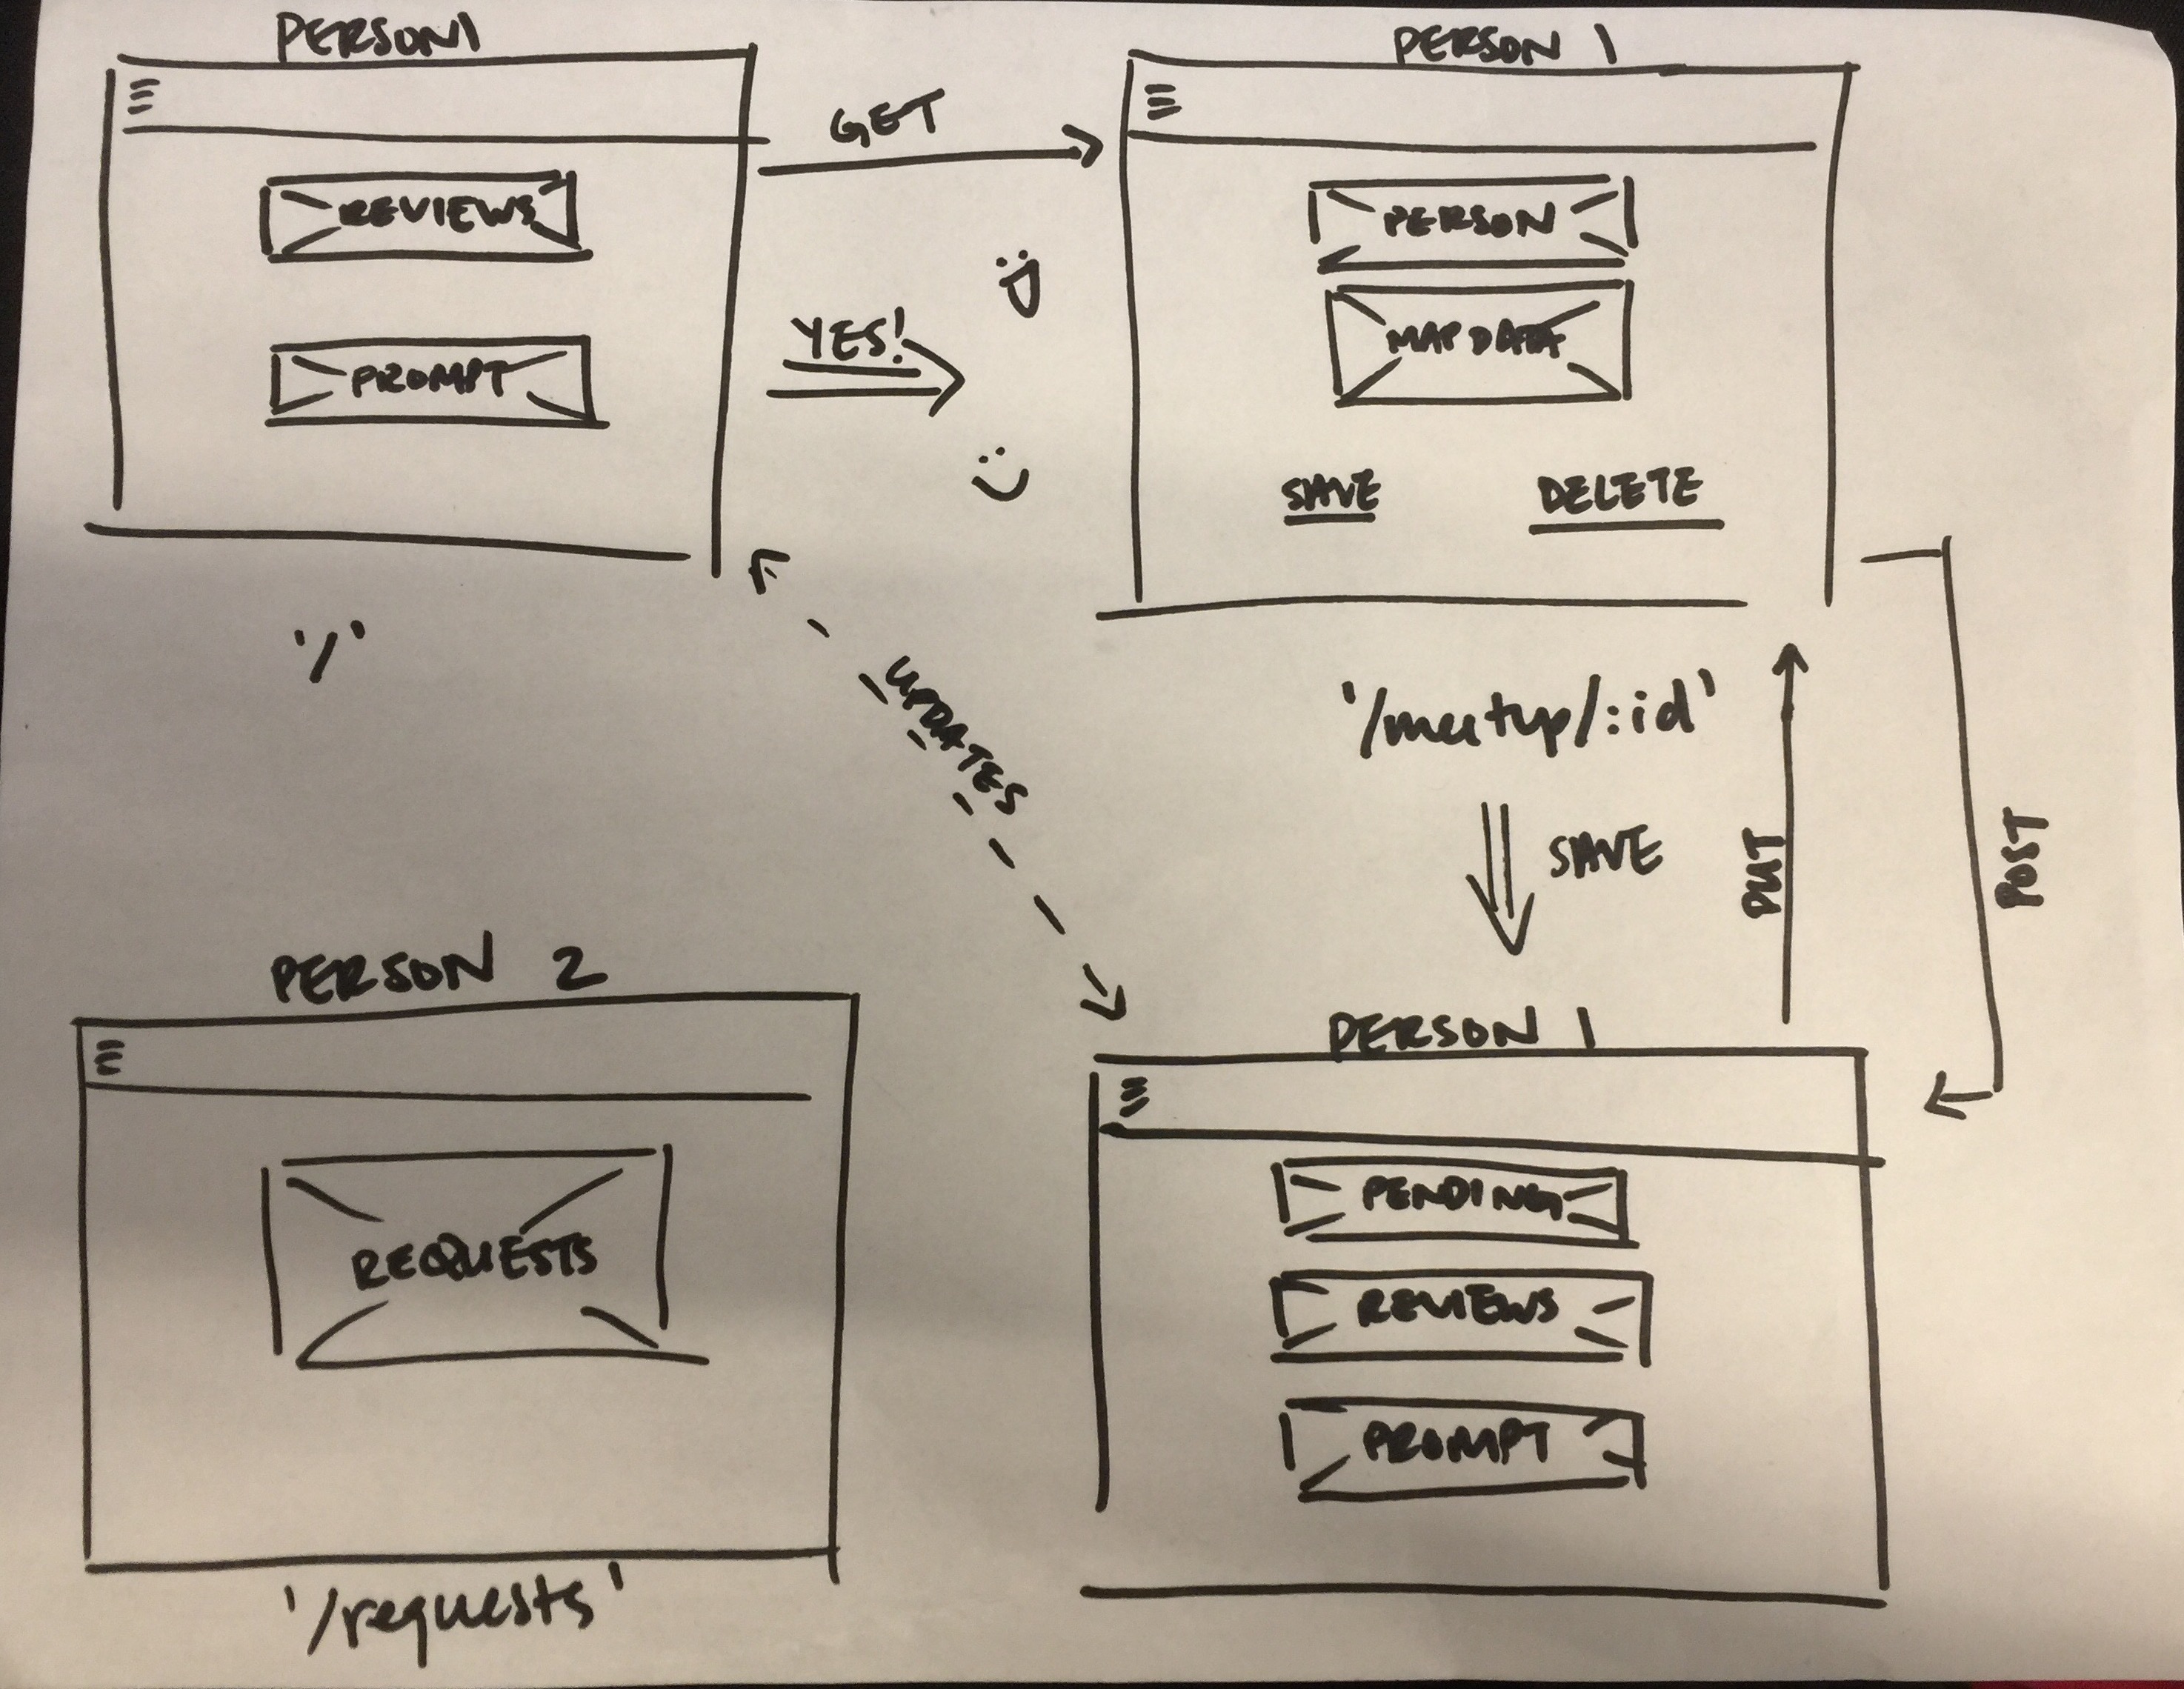 PERSON 1
REVIEWS
PROMPT
'/'
GET
YES!
PERSON 1
PERSON
MAP DATA
SAVE
DELETE
'/meetup/:id'
SAVE
PUT
POST
UPDATES
PERSON 2
REQUESTS
'/requests'
PERSON 1
PENDING
REVIEWS
PROMPT